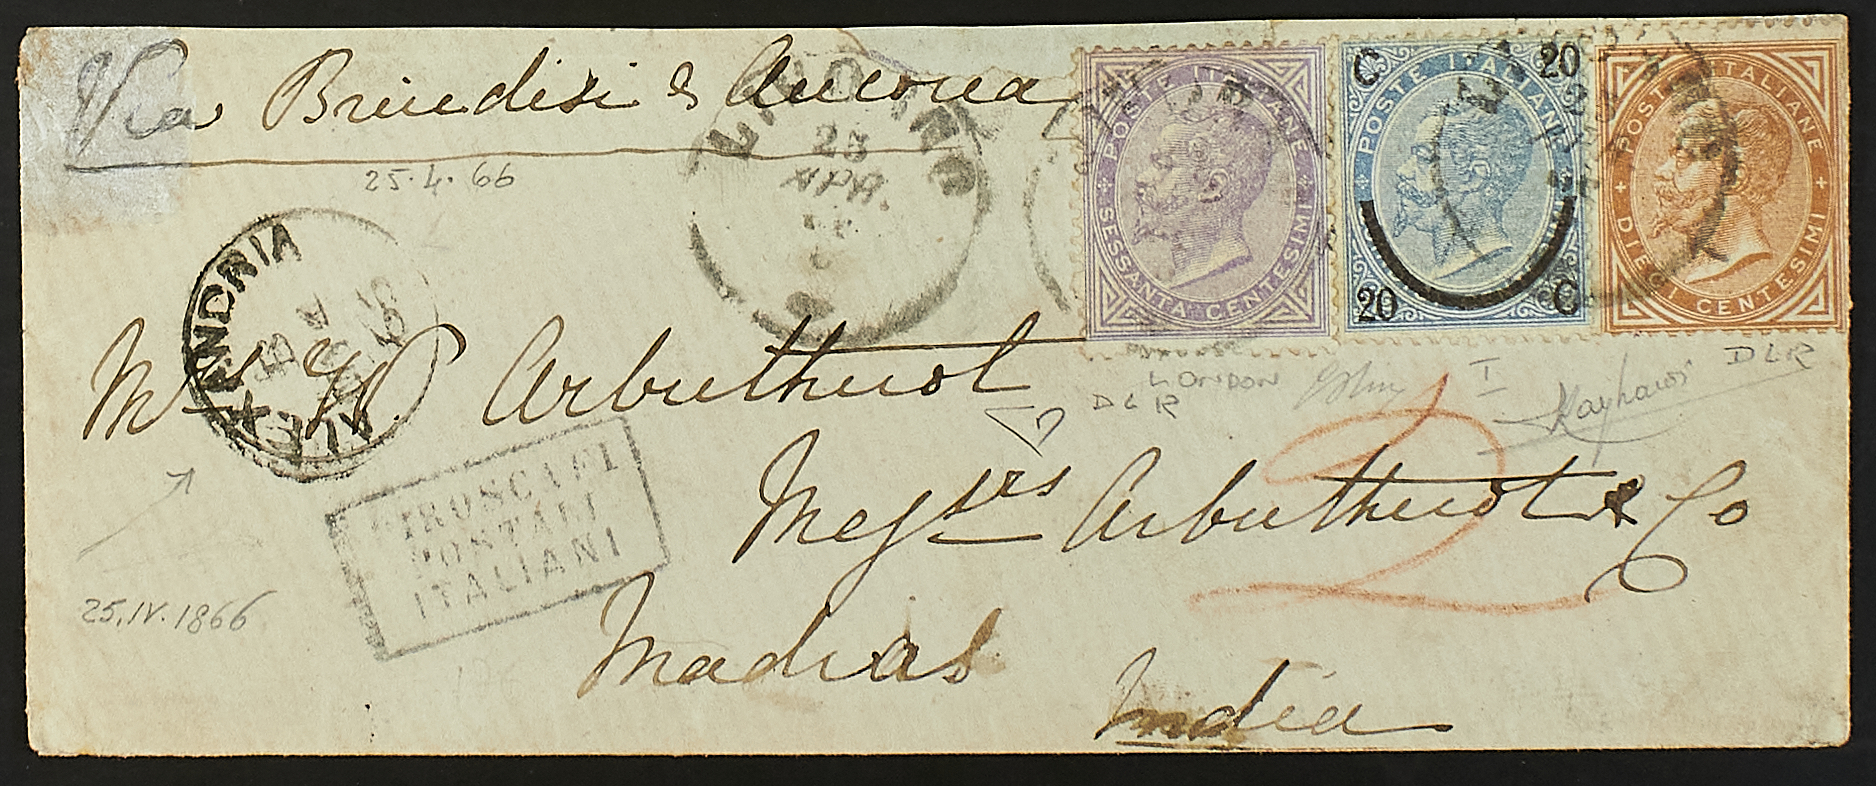 Via Brindisi & Ancona
25.4.66
LIVORNO
23
APR.
POSTE ITALIANE
SESSANTA CENTESIMI
C 20
POSTE ITALIANE
20 C
23
POSTE ITALIANE
DIECI CENTESIMI
ALEXANDRIA
A
LONDON
DLR
I
DLR
Mrs G Arbuthnot
2
PIROSCAFI
POSTALI
ITALIANI
Messrs Arbuthnot & Co
25.IV.1866
Madras
India